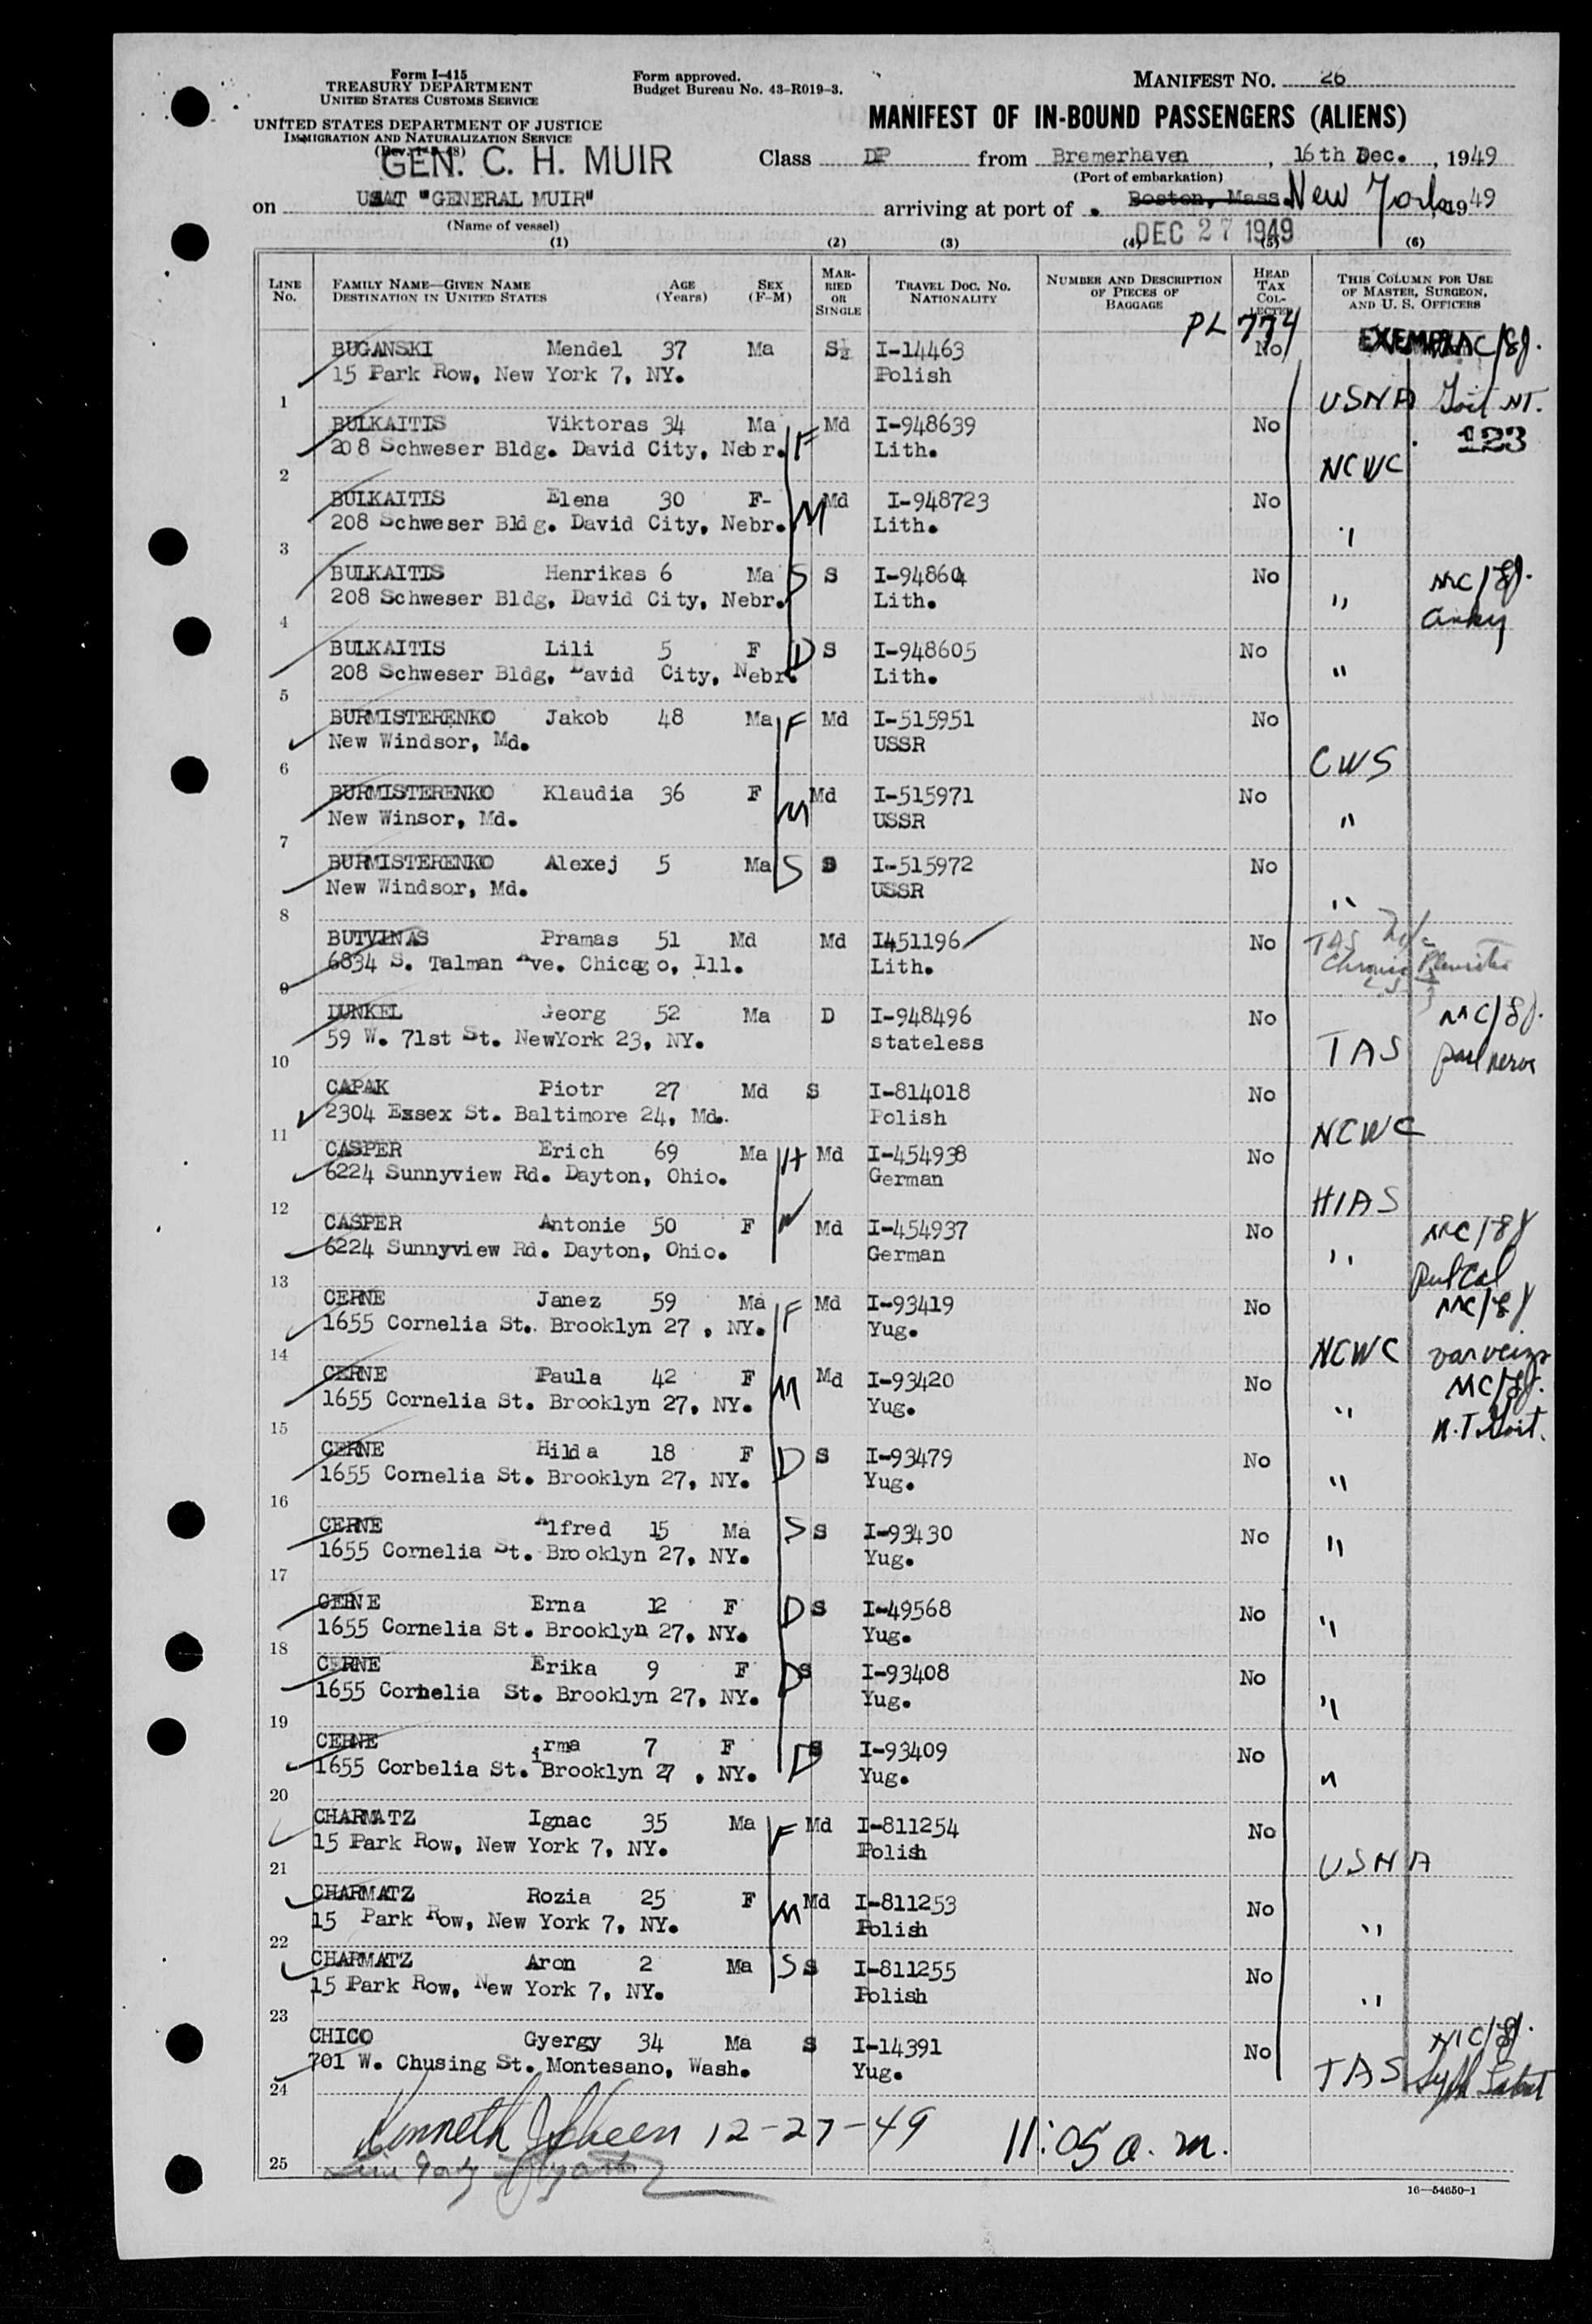 Form I-415
TREASURY DEPARTMENT
UNITED STATES CUSTOMS SERVICE
UNITED STATES DEPARTMENT OF JUSTICE
IMMIGRATION AND NATURALIZATION SERVICE
Form approved.
Budget Bureau No. 43-R019-3.
MANIFEST NO. 26
MANIFEST OF IN-BOUND PASSENGERS (ALIENS)
GEN. C. H. MUIR
Class DP from Bremerhaven, 16th Dec., 1949
(Port of embarkation)
on USAT "GENERAL MUIR" arriving at port of Boston, Mass. New York, 1949
(Name of vessel)
DEC 27 1949
(1) (2) (3) (4) (5) (6)
LINE No. FAMILY NAME—GIVEN NAME DESTINATION IN UNITED STATES AGE (Years) SEX (F-M) MARRIED OR SINGLE TRAVEL DOC. NO. NATIONALITY NUMBER AND DESCRIPTION OF PIECES OF BAGGAGE HEAD TAX COLLECTED THIS COLUMN FOR USE OF MASTER, SURGEON, AND U. S. OFFICERS
PL 774
BUGANSKI Mendel 37 Ma S I-14463 No
15 Park Row, New York 7, NY. Polish
1 USNA
BULKAITIS Viktoras 34 Ma F Md I-948639 No 123
208 Schweser Bldg. David City, Nebr. Lith.
2 NCWC
BULKAITIS Elena 30 F- M Md I-948723 No
208 Schweser Bldg. David City, Nebr. Lith. "
3
BULKAITIS Henrikas 6 Ma S S I-948604 No MC/
208 Schweser Bldg, David City, Nebr. Lith. "
4
BULKAITIS Lili 5 F D S I-948605 No
208 Schweser Bldg, David City, Nebr. Lith. "
5
BURMISTERENKO Jakob 48 Ma F Md I-515951 No
New Windsor, Md. USSR
6 CWS
BURMISTERENKO Klaudia 36 F M Md I-515971 No
New Winsor, Md. USSR "
7
BURMISTERENKO Alexej 5 Ma S S I-515972 No
New Windsor, Md. USSR "
8
BUTVINAS Pramas 51 Md Md I451196 No TAS
6834 S. Talman Ave. Chicago, Ill. Lith. Chronic
9
DUNKEL Georg 52 Ma D I-948496 No MC/
59 W. 71st St. NewYork 23, NY. stateless TAS
10
CAPAK Piotr 27 Md S I-814018 No
2304 Essex St. Baltimore 24, Md. Polish
11 NCWC
CASPER Erich 69 Ma H Md I-454938 No
6224 Sunnyview Rd. Dayton, Ohio. German
12 HIAS
CASPER Antonie 50 F W Md I-454937 No MC/
6224 Sunnyview Rd. Dayton, Ohio. German "
13
CERNE Janez 59 Ma F Md I-93419 No MC/
1655 Cornelia St. Brooklyn 27, NY. Yug.
14 NCWC
CERNE Paula 42 F M Md I-93420 No MC/
1655 Cornelia St. Brooklyn 27, NY. Yug. "
15
CERNE Hilda 18 F D S I-93479 No
1655 Cornelia St. Brooklyn 27, NY. Yug. "
16
CERNE Alfred 15 Ma S S I-93430 No
1655 Cornelia St. Brooklyn 27, NY. Yug. "
17
CERNE Erna 12 F D S I-49568 No
1655 Cornelia St. Brooklyn 27, NY. Yug. "
18
CERNE Erika 9 F D S I-93408 No
1655 Cornelia St. Brooklyn 27, NY. Yug. "
19
CERNE irma 7 F D S I-93409 No
1655 Corbelia St. Brooklyn 27, NY. Yug. "
20
CHARMATZ Ignac 35 Ma F Md I-811254 No
15 Park Row, New York 7, NY. Polish
21 USNA
CHARMATZ Rozia 25 F M Md I-811253 No
15 Park Row, New York 7, NY. Polish "
22
CHARMATZ Aron 2 Ma S S I-811255 No
15 Park Row, New York 7, NY. Polish "
23
CHICO Gyergy 34 Ma S I-14391 No MC/
701 W. Chusing St. Montesano, Wash. Yug. TAS
24
Kenneth J 12-27-49 11:05 a.m.
25
16—54650-1